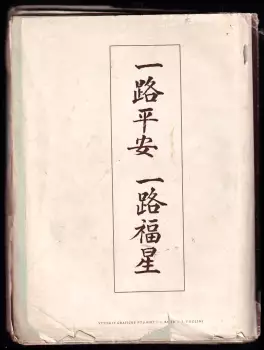 一路平安 一路福星